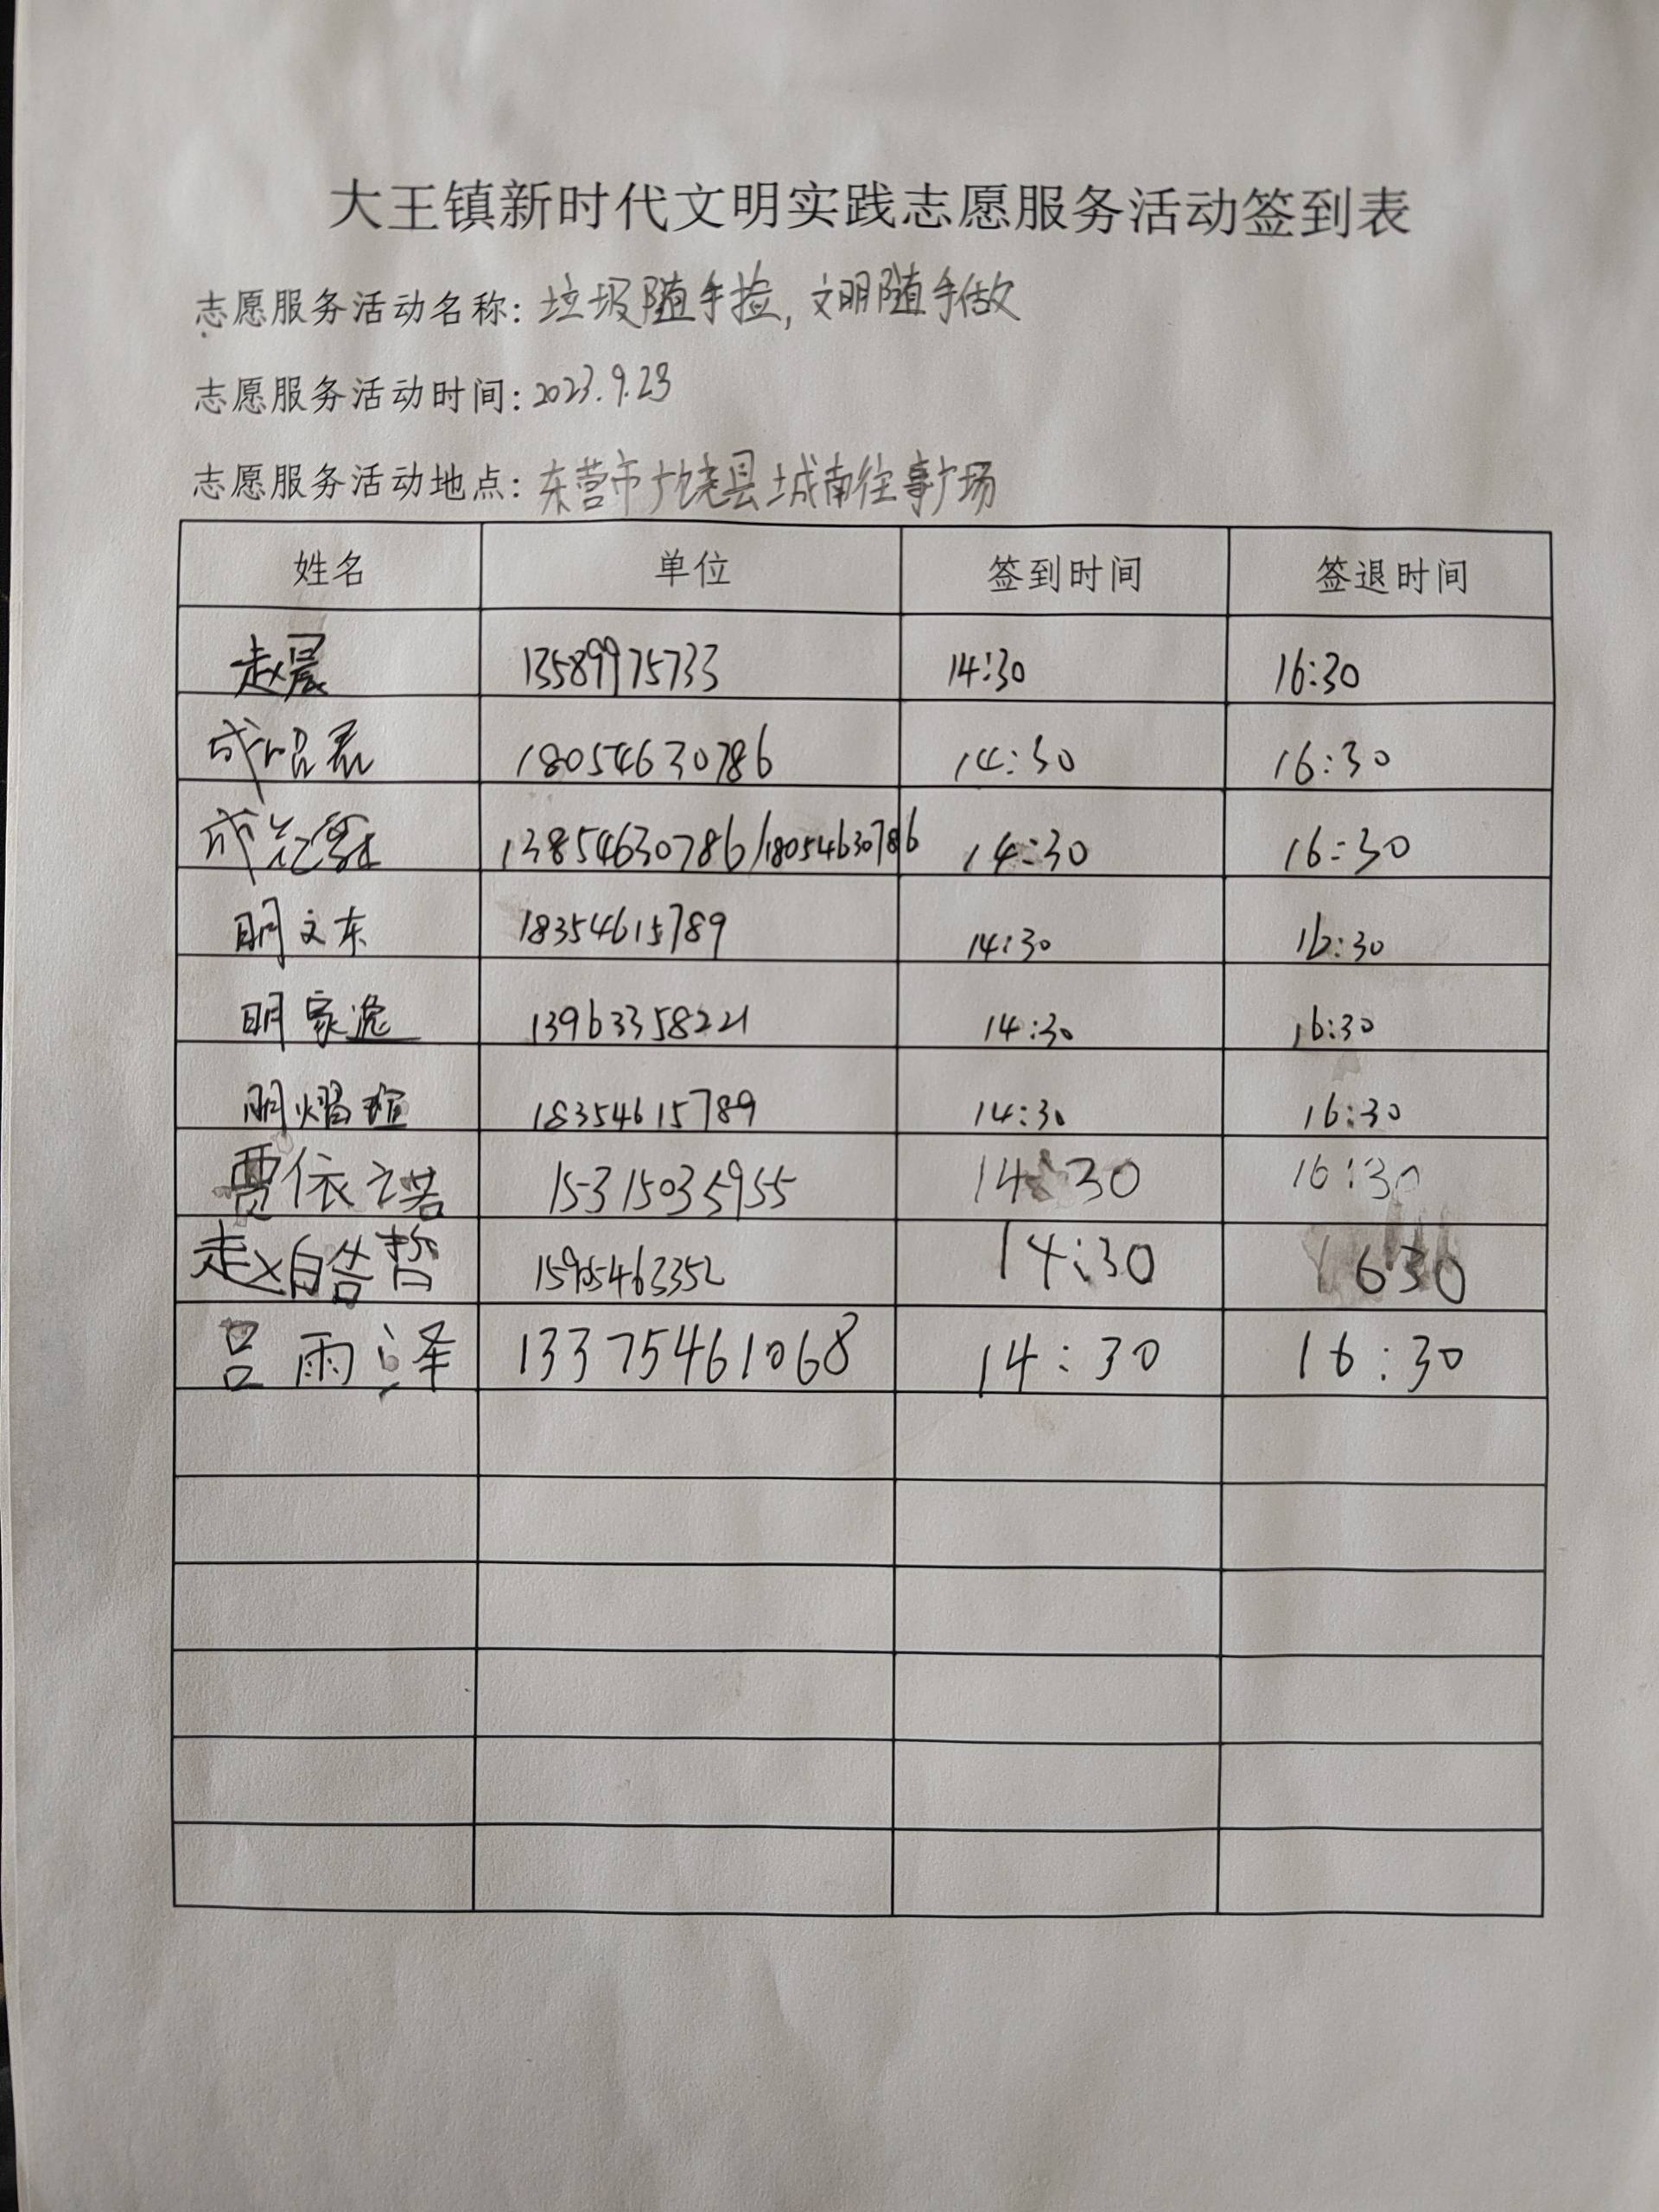 大王镇新时代文明实践志愿服务活动签到表
志愿服务活动名称: 垃圾随手捡, 文明随手做
志愿服务活动时间: 2023.9.23
志愿服务活动地点: 东营市广饶县城南往事广场
姓名 单位 签到时间 签退时间
赵晨 13589975733 14:30 16:30
成 18054630786 14:30 16:30
成 13854630786/18054630786 14:30 16:30
明文东 18354615789 14:30 16:30
明家逸 13963358221 14:30 16:30
明熠瑄 18354615789 14:30 16:30
贾依诺 15315035955 14:30 16:30
赵皓哲 15905463352 14:30 1630
吕雨泽 13375461068 14:30 16:30